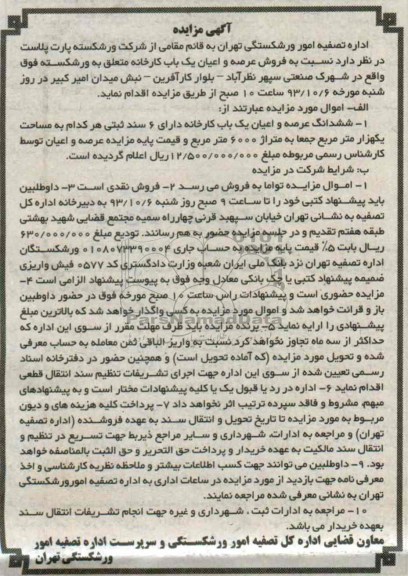 آگهی مزایده
اداره تصفیه امور ورشکستگی تهران به قائم مقامی از شرکت ورشکسته پارت پلاست
در نظر دارد نسبت به فروش عرصه و اعیان یک باب کارخانه متعلق به ورشکسته فوق
واقع در شهرک صنعتی سپهر نظرآباد – بلوار کارآفرین – نبش میدان امیر کبیر در روز
شنبه مورخه ۹۳/۱۰/۶ ساعت ۱۰ صبح از طریق مزایده اقدام نماید.
الف- اموال مورد مزایده عبارتند از:
۱- ششدانگ عرصه و اعیان یک باب کارخانه دارای ۶ سند ثبتی هر کدام به مساحت
یکهزار متر مربع جمعا به متراژ ۶۰۰۰ متر مربع و قیمت پایه مزایده عرصه و اعیان توسط
کارشناس رسمی مربوطه مبلغ ۱۲/۵۰۰/۰۰۰/۰۰۰ریال اعلام گردیده است.
ب: شرایط شرکت در مزایده
۱- اموال مزایده تواما به فروش می رسد ۲- فروش نقدی است ۳- داوطلبین
باید پیشنهاد کتبی خود را تا ساعت ۹ صبح روز شنبه ۹۳/۱۰/۶ به دبیرخانه اداره کل
تصفیه به نشانی تهران خیابان سپهبد قرنی چهارراه سمیه مجتمع قضایی شهید بهشتی
طبقه هفتم تقدیم و در جلسه مزایده حضور به هم رسانند. تودیع مبلغ ۶۳۰/۰۰۰/۰۰۰
ریال بابت ۵٪ قیمت پایه مزایده به حساب جاری ۰۱۰۸۰۷۳۳۹۰۰۰۴ ورشکستگان
اداره تصفیه تهران نزد بانک ملی ایران شعبه وزارت دادگستری کد ۰۵۷۷ فیش واریزی
ضمیمه پیشنهاد کتبی یا چک بانکی معادل وجه فوق به پیوست پیشنهاد الزامی است ۴-
مزایده حضوری است و پیشنهادات راس ساعت ۱۰ صبح مورخه فوق در حضور داوطلبین
باز و قرائت خواهد شد و اموال مورد مزایده به کسی واگذار خواهد شد که بالاترین مبلغ
پیشنهادی را ارایه نماید ۵- برنده مزایده باید ظرف مهلت مقرر از سوی این اداره که
حداکثر از سه ماه تجاوز نخواهد کرد نسبت به واریز الباقی ثمن معامله به حساب معرفی
شده و تحویل مورد مزایده (که آماده تحویل است) و همچنین حضور در دفترخانه اسناد
رسمی تعیین شده از سوی این اداره جهت اجرای تشریفات تنظیم سند انتقال قطعی
اقدام نماید ۶- اداره در رد یا قبول یک یا کلیه پیشنهادات مختار است و به پیشنهادهای
مبهم، مشروط و فاقد سپرده ترتیب اثر نخواهد داد ۷- پرداخت کلیه هزینه های و دیون
مربوط به مورد مزایده تا تاریخ تحویل و انتقال سند به عهده فروشنده (اداره تصفیه
تهران) و مراجعه به ادارات، شهرداری و سایر مراجع ذیربط جهت تسریع در تنظیم و
انتقال سند مالکیت به عهده خریدار و پرداخت حق التحریر و حق الثبت بالمناصفه خواهد
بود. ۹- داوطلبین می توانند جهت کسب اطلاعات بیشتر و ملاحظه نظریه کارشناسی و اخذ
معرفی نامه جهت بازدید از مورد مزایده در ساعات اداری به اداره تصفیه امور ورشکستگی
تهران به نشانی معرفی شده مراجعه نمایند.
۱۰- مراجعه به ادارات ثبت ، شهرداری و غیره جهت انجام تشریفات انتقال سند
بعهده خریدار می باشد.
معاون قضایی اداره کل تصفیه امور ورشکستگی و سرپرست اداره تصفیه امور
ورشکستگی تهران